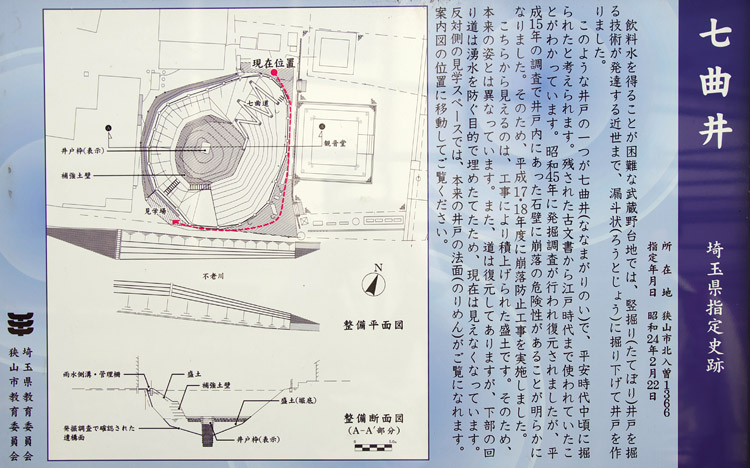 七曲井
埼玉県指定史跡
所在地 狭山市北入曽1366
指定年月日 昭和24年2月22日
飲料水を得ることが困難な武蔵野台地では、竪掘り(たてぼり)井戸を掘
る技術が発達する近世まで、漏斗状(ろうとじょう)に掘り下げて井戸を作
りました。
このような井戸の一つが七曲井(ななまがりのい)で、平安時代中頃に掘
られたと考えられます。残された古文書から江戸時代まで使われていたこ
とがわかっています。昭和45年に発掘調査が行われ復元されましたが、平
成15年の調査で井戸内にあった石壁に崩落の危険性があることが明らかに
なりました。そのため、平成17・18年度に崩落防止工事を実施しました。
こちらから見えるのは、工事により積上げられた盛土です。そのため、
本来の姿とは異なっています。また、道は復元してありますが、下部の回
り道は湧水を防ぐ目的で埋めたてたため、現在は見えなくなっています。
反対側の見学スペースでは、本来の井戸の法面(のりめん)がご覧になれます。
案内図の位置に移動してご覧ください。
現在位置
七曲道
井戸枠(表示)
補強土壁
見学場
観音堂
不老川
N
整備平面図
雨水側溝・管理柵
盛土
補強土壁
盛土(堀底)
発掘調査で確認された
遺構面
井戸枠(表示)
整備断面図
(A-A'部分)
埼玉県教育委員会
狭山市教育委員会